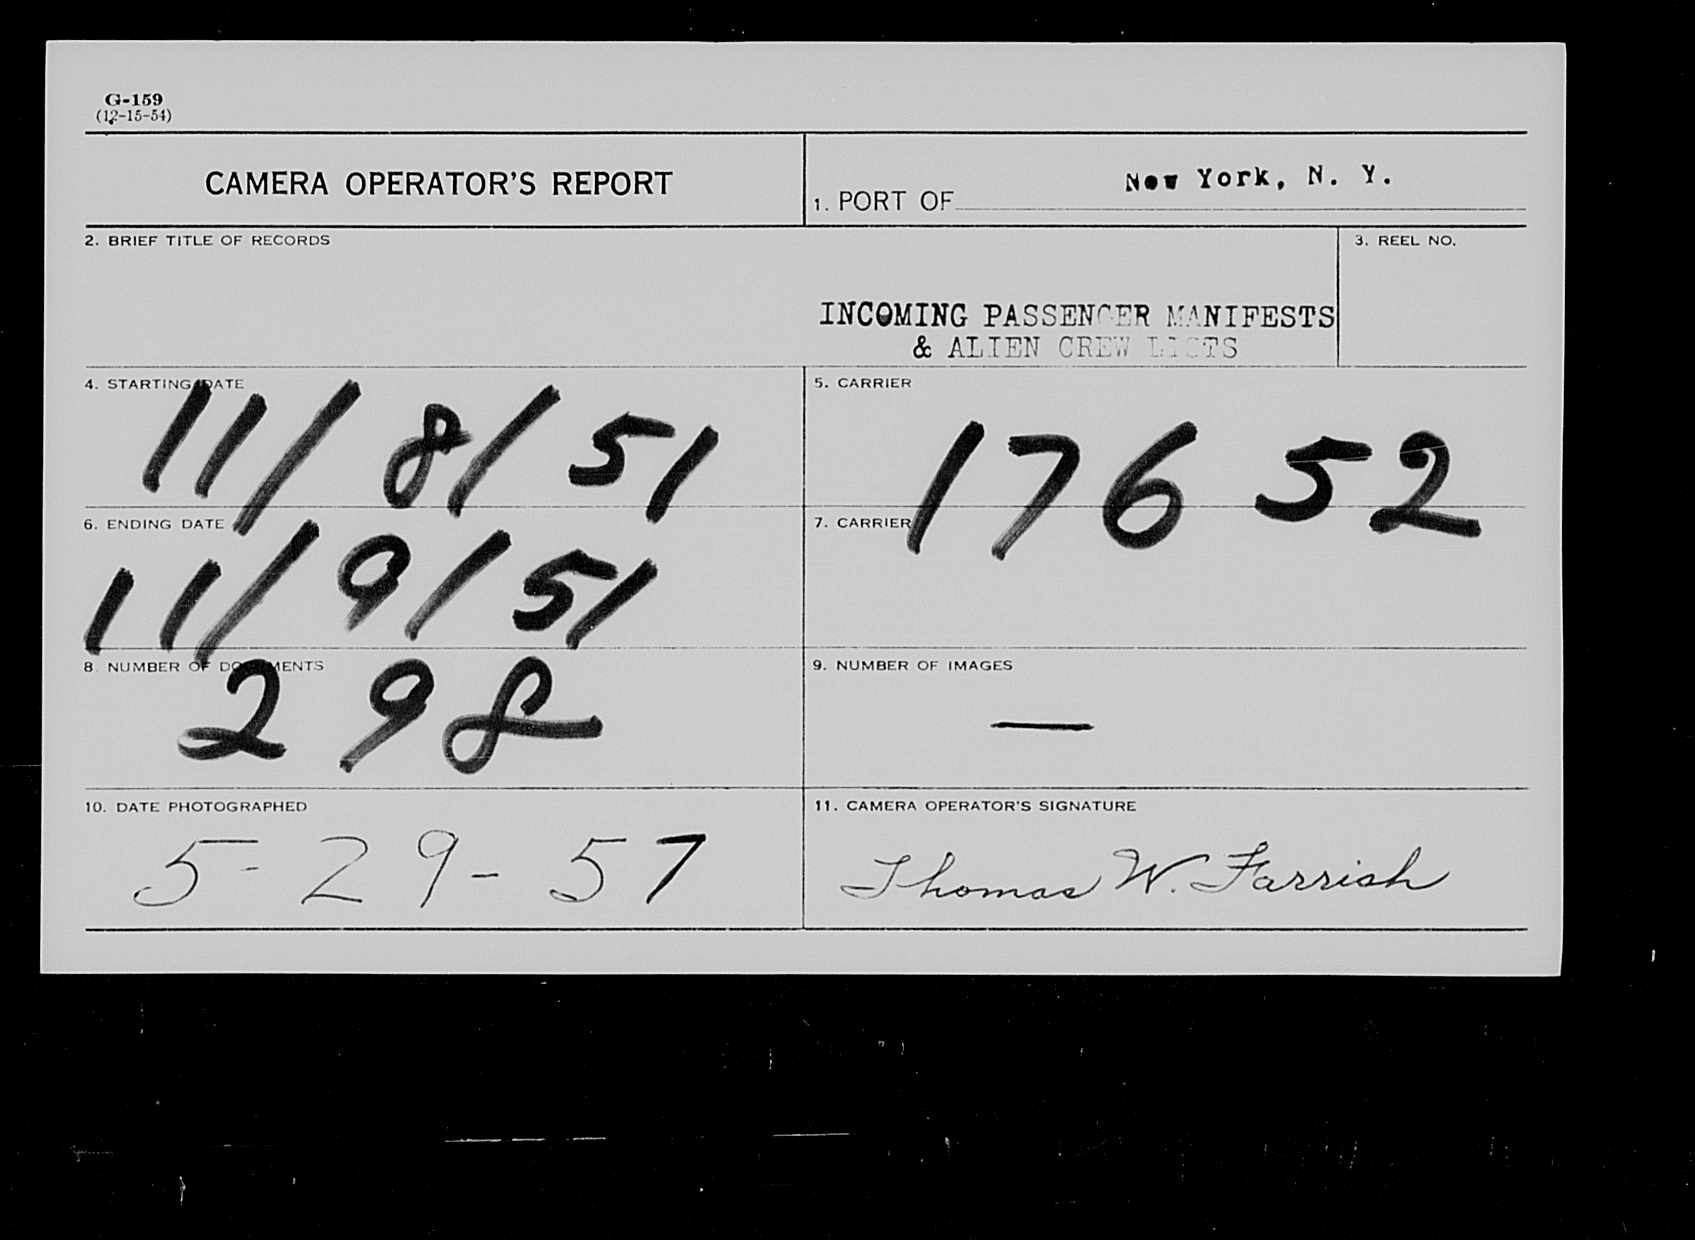 G-159
(12-15-54)
CAMERA OPERATOR'S REPORT
1. PORT OF New York, N. Y.
2. BRIEF TITLE OF RECORDS
INCOMING PASSENGER MANIFESTS
& ALIEN CREW LISTS
3. REEL NO.
4. STARTING DATE
11/8/51
5. CARRIER
17652
6. ENDING DATE
11/9/51
7. CARRIER
8. NUMBER OF DOCUMENTS
298
9. NUMBER OF IMAGES
—
10. DATE PHOTOGRAPHED
5-29-57
11. CAMERA OPERATOR'S SIGNATURE
Thomas W. Farrish